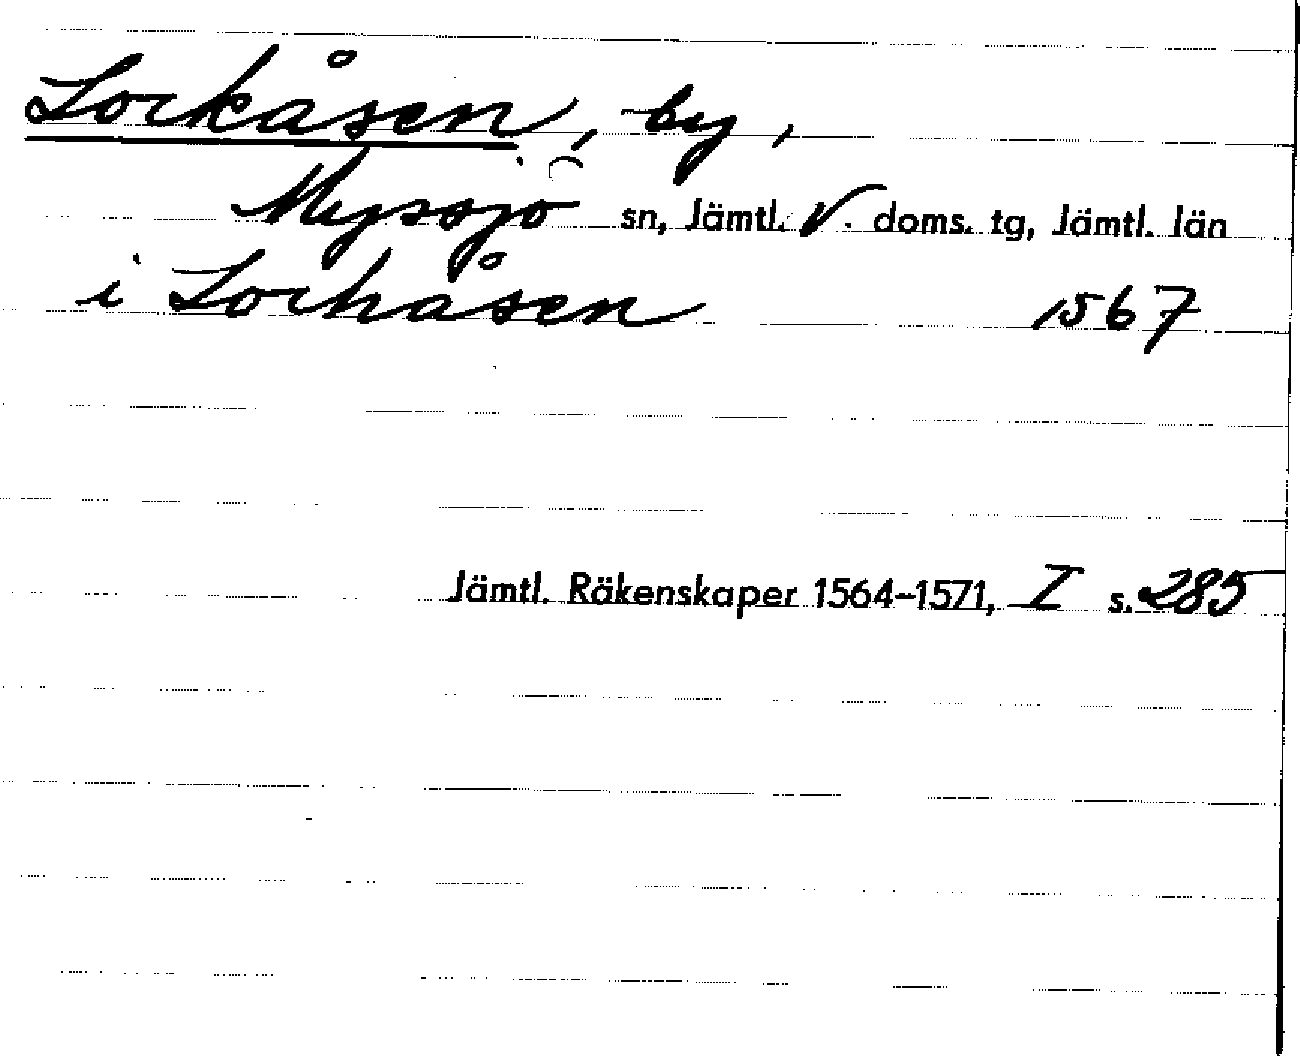 Lockåsen, by,
Myssjö sn, Jämtl. V. doms. tg, Jämtl. län
i Lockåsen 1567
Jämtl. Räkenskaper 1564-1571, I s. 285